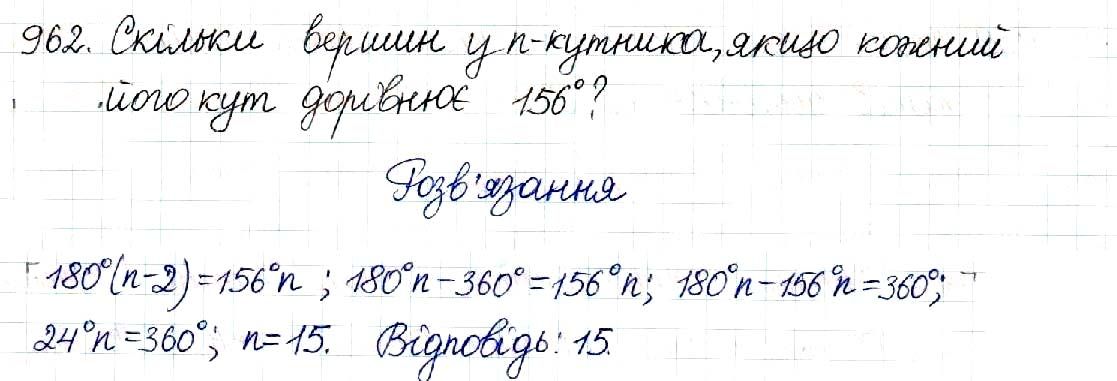 962. Скільки вершин у n-кутника, якщо кожний
його кут дорівнює 156°?
Розв'язання
180°(n-2)=156°n ; 180°n-360°=156°n; 180°n-156°n=360°;
24°n=360°; n=15. Відповідь: 15.